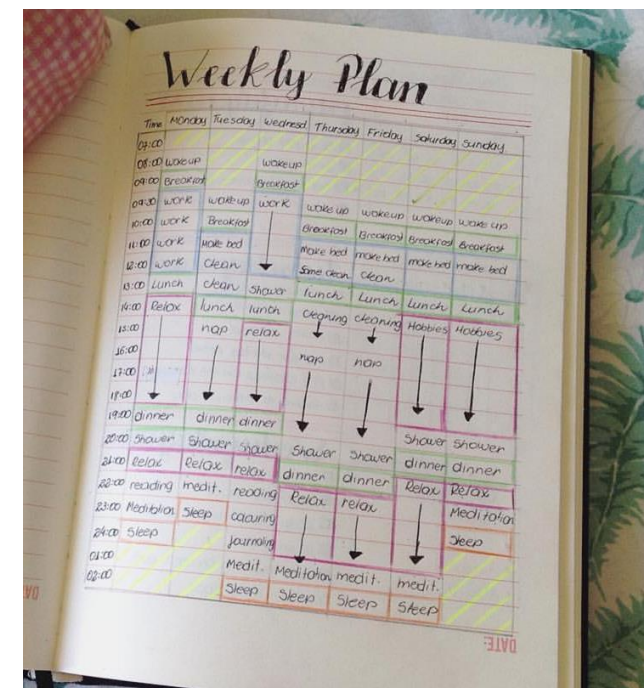 Weekly Plan
Time Monday Tuesday Wednesd Thursday Friday Saturday Sunday
07:00
08:00 wakeup wakeup
09:00 Breakfast Breakfast
09:30 work wakeup work wake up wakeup wakeup wake up
10:00 work Breakfast Breakfast Breakfast Breakfast Breakfast
11:00 work make bed make bed make bed make bed make bed
12:00 work clean Some clean clean
13:00 Lunch clean Shower lunch Lunch Lunch Lunch
14:00 Relax lunch lunch cleaning cleaning Hobbies Hobbies
15:00 nap relax
16:00 nap nap
17:00
18:00
19:00 dinner dinner dinner
20:00 Shower Shower Shower Shower Shower Shower Shower
21:00 Relax Relax relax dinner dinner dinner dinner
22:00 reading medit. reading Relax relax Relax Relax
23:00 Meditation Sleep colouring Meditation
24:00 Sleep Journaling Sleep
01:00 Medit. Meditation medit. medit.
02:00 Sleep Sleep Sleep Sleep
DATE:
DATE